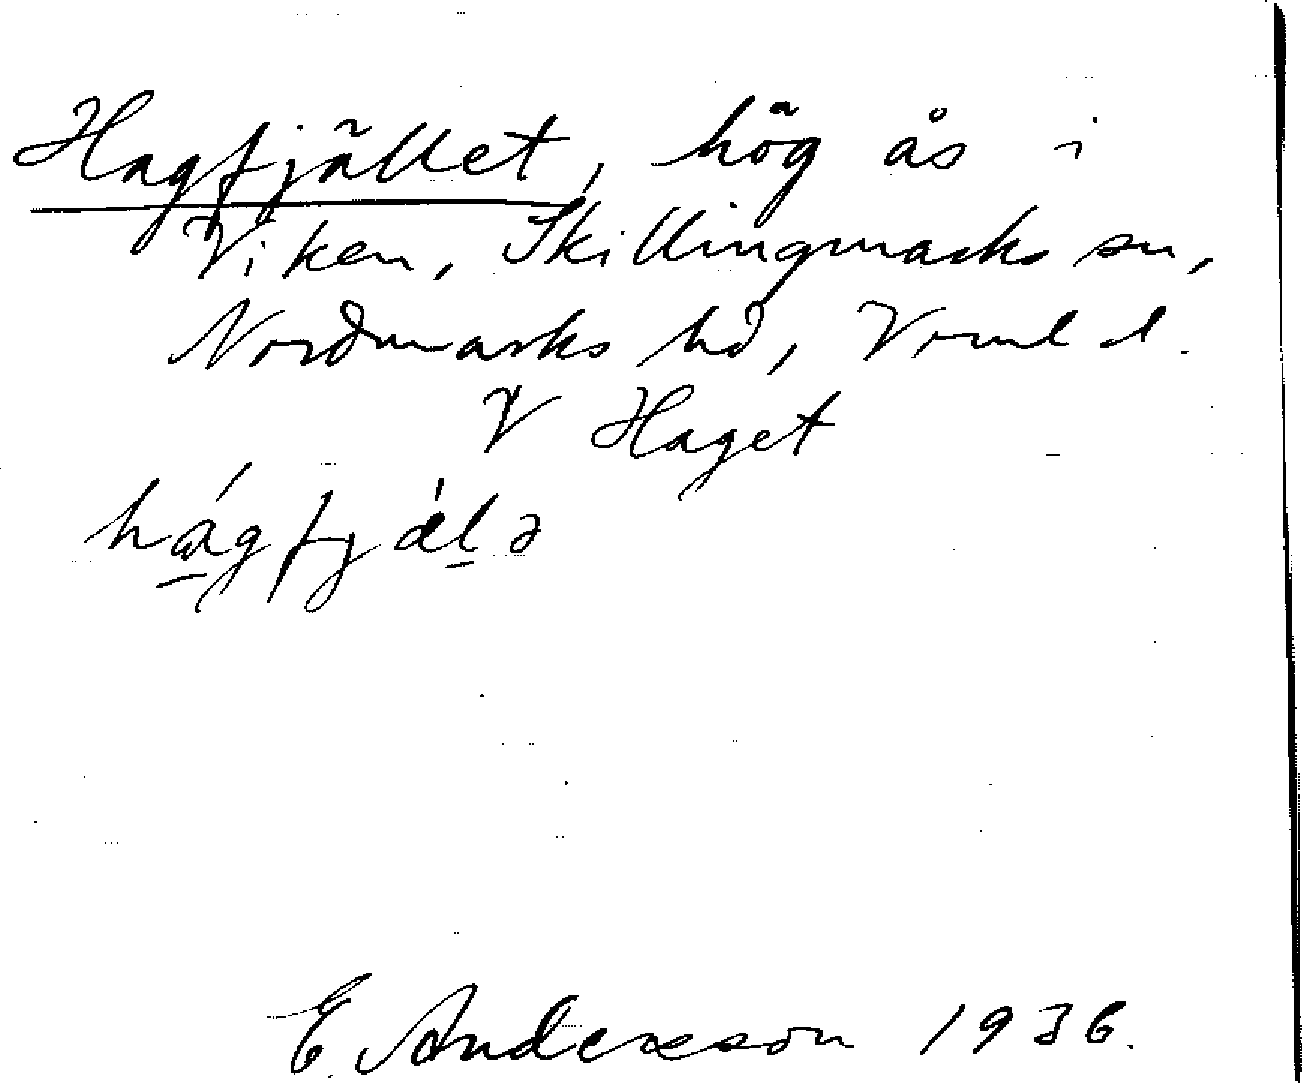 Hagfjället, hög ås i
Viken, Skillingmarks sn,
Nordmarks hd, Vrml d.
V Haget
hágfjǽlə
E. Andersson 1936.